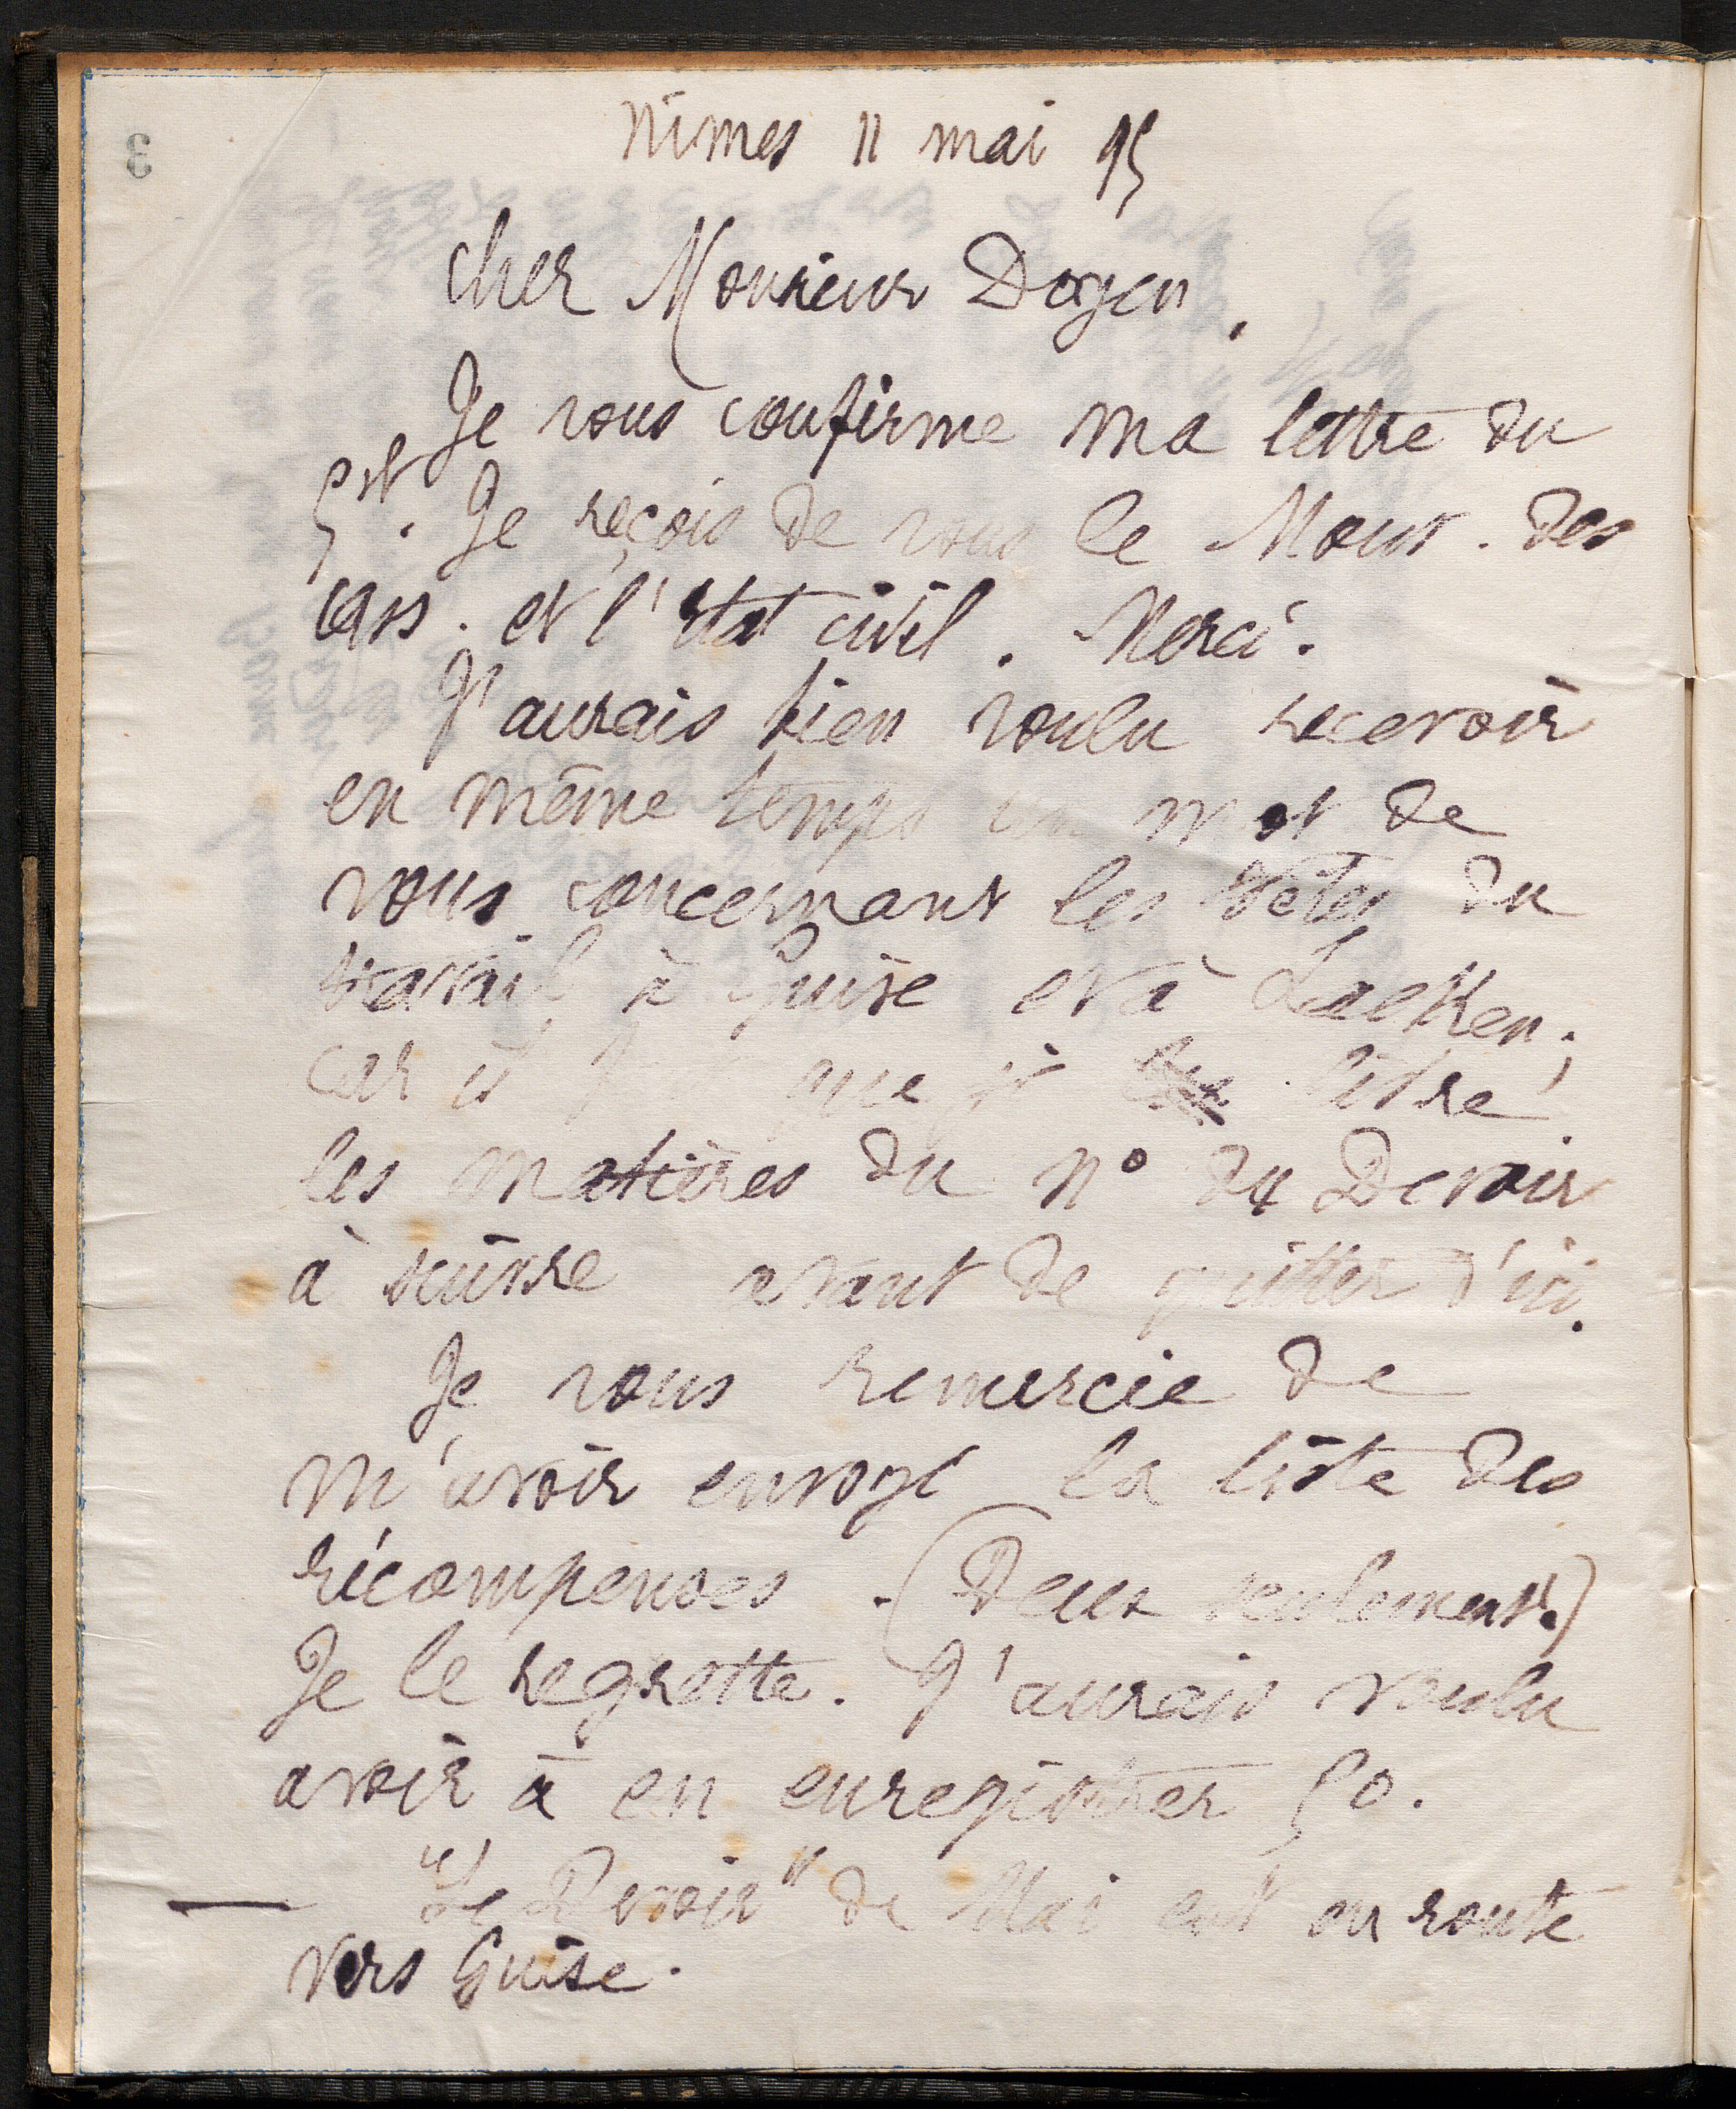 3
Nîmes 11 mai 95
Cher Monsieur Doyen,
Je vous confirme ma lettre du
5 ct. Je reçois de vous le Mouv. des
ass. et l'état civil. Merci.
J'aurais bien voulu recevoir
en même temps un mot de
vous concernant les fêtes du
travail à Guise et à Laeken;
car il faut que je livre
les matières du n° du Devoir
à suivre avant de quitter d'ici.
Je vous remercie de
m'avoir envoyé la liste des
récompenses. (Deux seulement.)
Je le regrette. J'aurais voulu
avoir à en enregistrer 50.
— "Le Devoir" de Mai est en route
vers Guise.